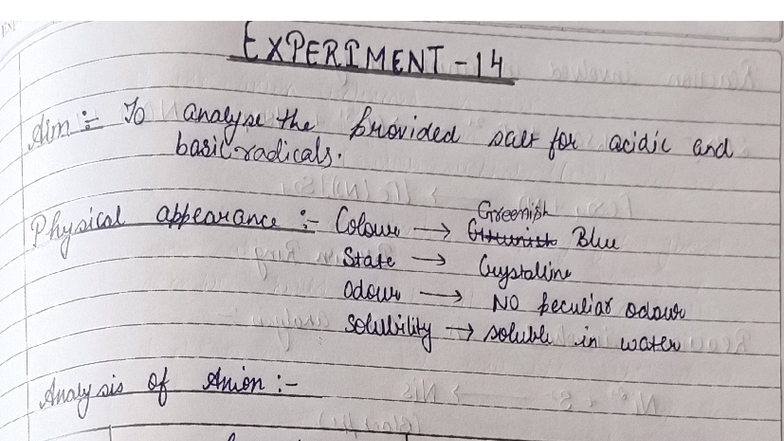 EXPERIMENT - 14
Aim :- To analyse the provided salt for acidic and
basic radicals.
Physical appearance :- Colour → Greenish Blue
State → Crystaline
Odour → NO peculiar odour
Solubility → soluble in water
Analysis of Anion :-